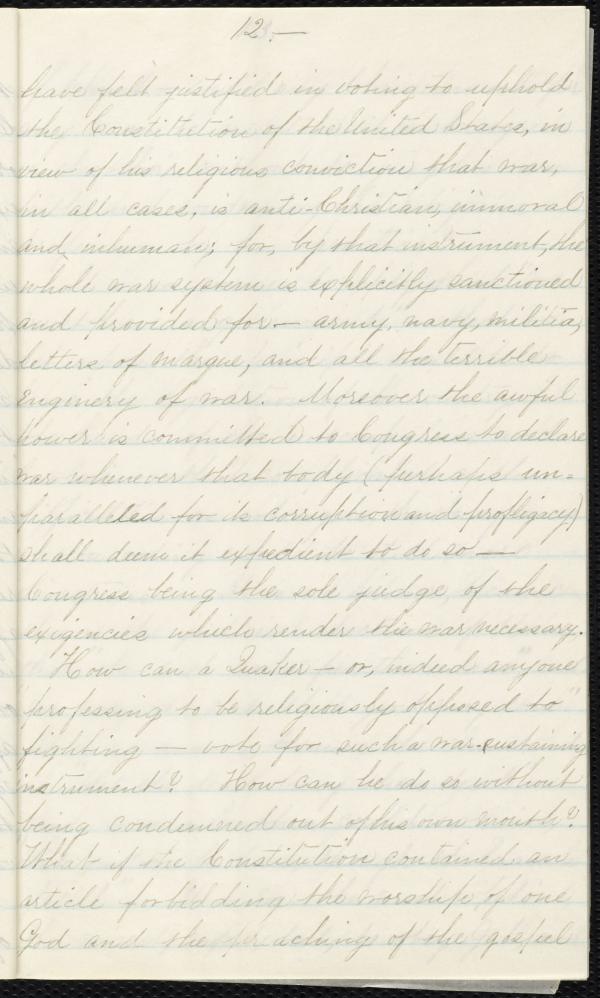 12.—
have felt justified in voting to uphold
the Constitution of the United States, in
view of his religious conviction that war,
in all cases, is anti-Christian, immoral
and inhuman; for, by that instrument, the
whole war system is explicitly sanctioned
and provided for— army, navy, militia,
letters of marque, and all the terrible
Enginery of war. Moreover the awful
power is committed to Congress to declare
war whenever that body (perhaps un=
paralleled for its corruption and profligacy)
shall deem it expedient to do so —
Congress being the sole judge of the
exigencies which render the war necessary.
How can a Quaker — or, indeed anyone
"professing to be religiously opposed to"
fighting — vote for such a war-sustaining
instrument? How can he do so without
being condemned out of his own mouth?
What if the Constitution contained an
article forbidding the worship of one
God and the preaching of the gospel